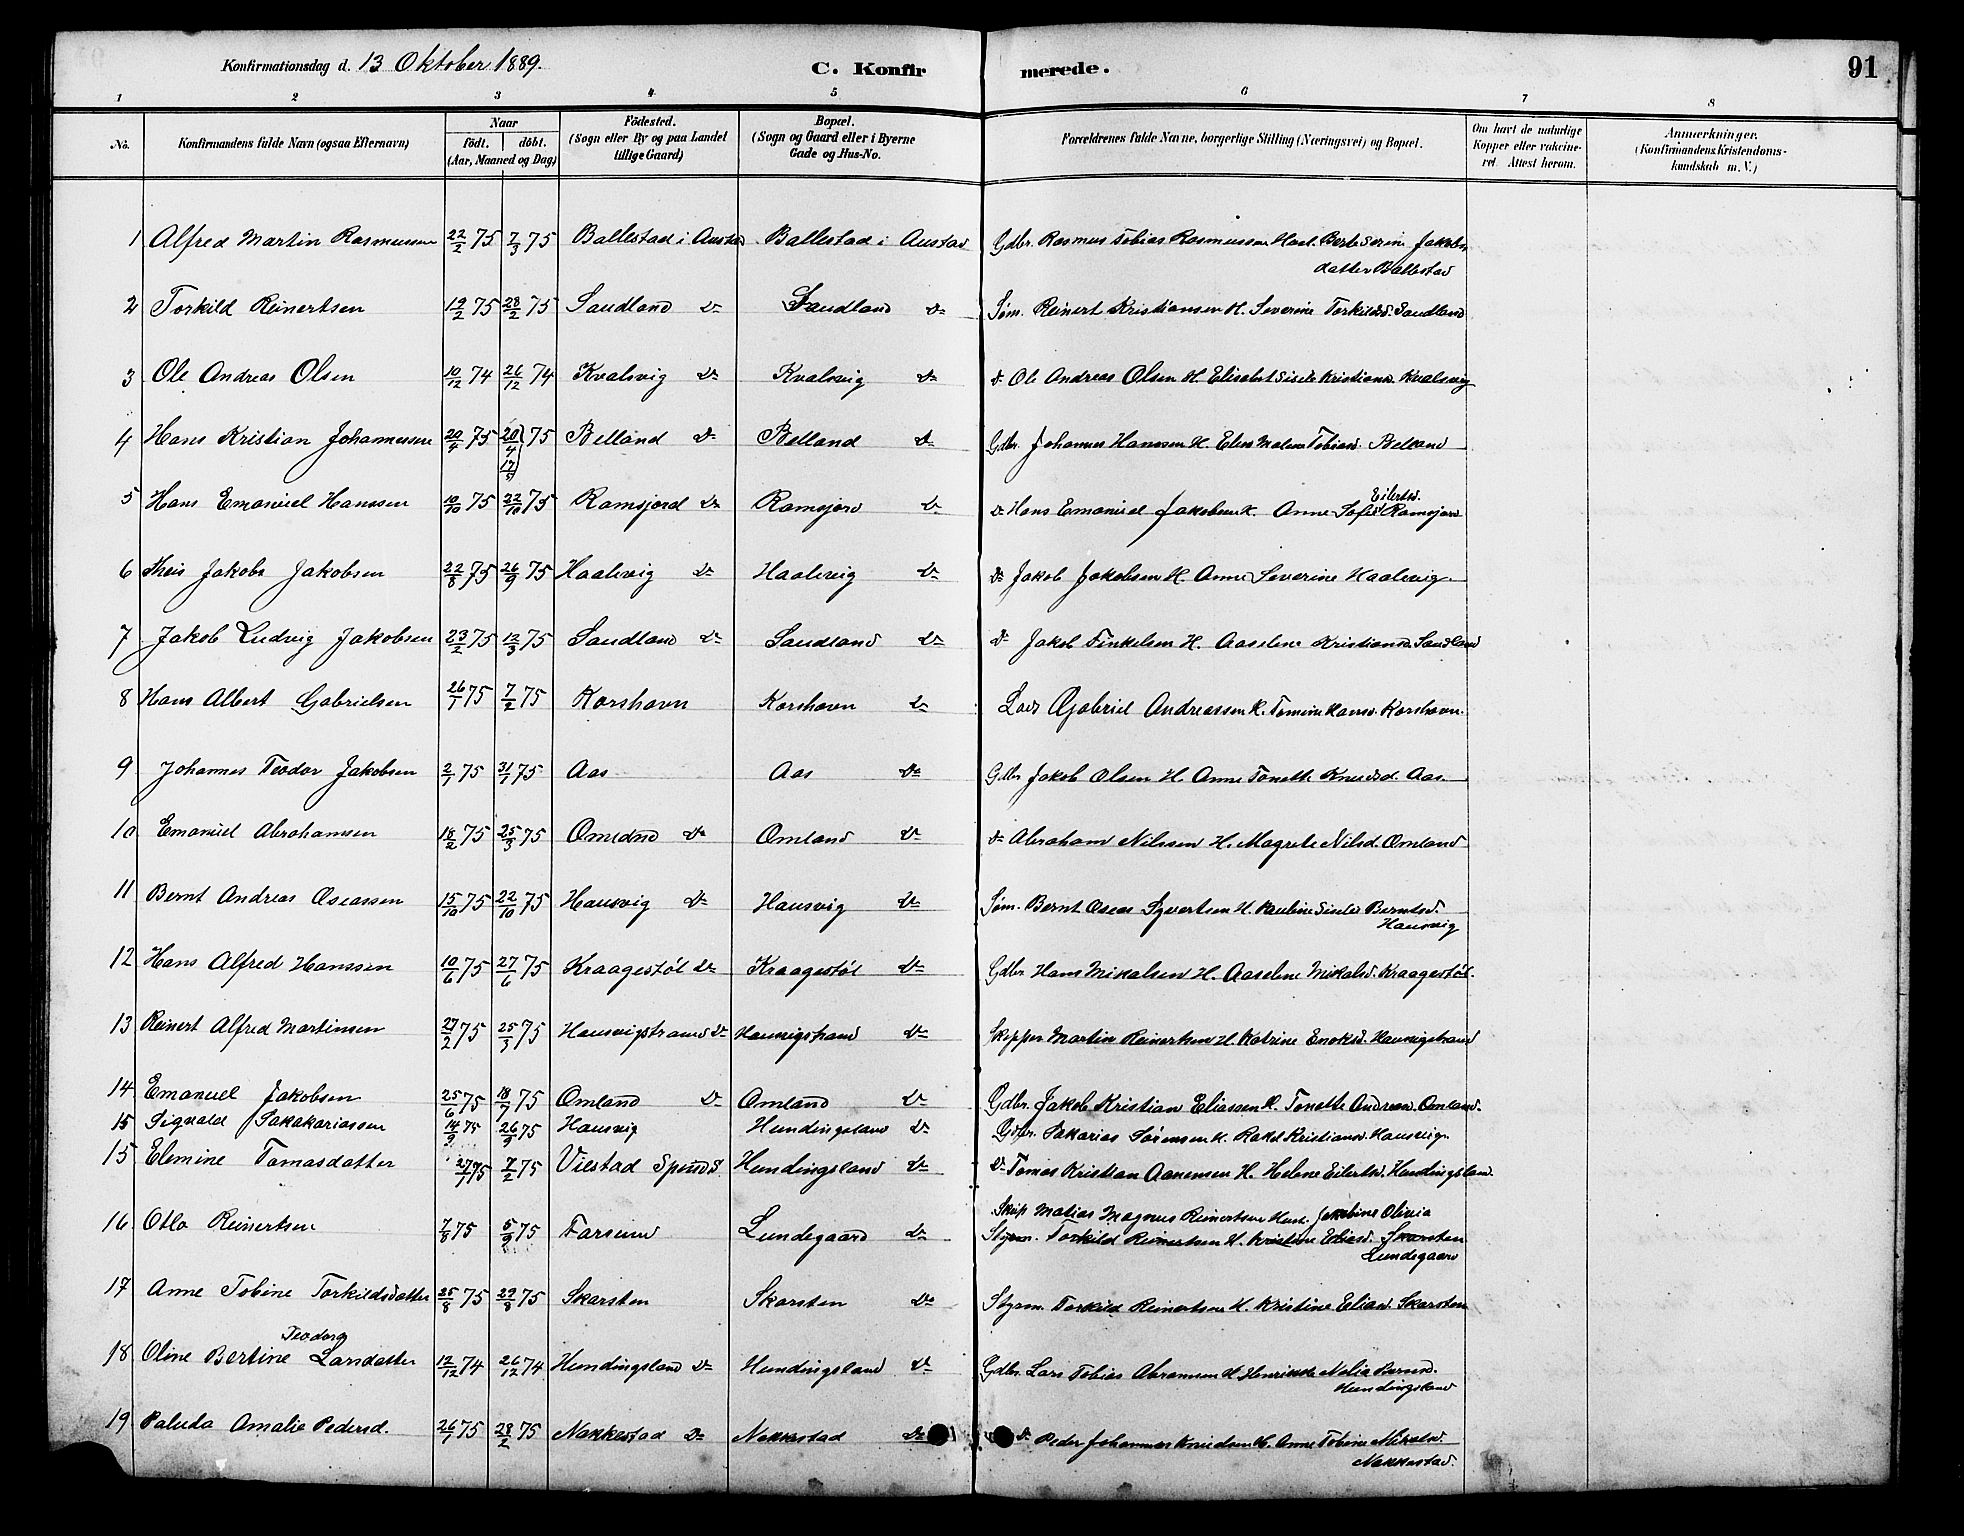 Konfirmationsdag d. 13 Oktober 1889.
C. Konfirmerede.
91
1 2 3 4 5 6 7 8
No.
Konfirmandens fulde Navn (ogsaa Efternavn)
Naar
födt. döbt.
(Aar, Maaned og Dag)
Födested.
(Sogn eller By og paa Landet
tillige Gaard)
Bopæl.
(Sogn og Gaard eller i Byerne
Gade og Hus-No.
Forældrenes fulde Navne, borgerlige Stilling (Næringsvei) og Bopæl.
Om havt de naturlige
Kopper eller vakcine-
ret. Attest herom.
Anmærkninger.
(Konfirmandens Kristendoms-
kundskab m. V.)
1 Alfred Martin Rasmussen 22/2 75 7/3 75 Ballestad i Austad Ballestad i Austad Gdbr. Rasmus Tobias Rasmussen Berte Serine Jakobs
datter Ballestad
2 Torkild Reinertsen 12/2 75 28/2 75 Sandland Do Sandland Do Søm. Reinert Kristiansen H. Severine Torkildsd. Sandland
3 Ole Andreas Olsen 10/12 74 26/12 74 Kvalsvig Do Kvalsvig Do Do Ole Andreas Olsen H. Elisabet Sisele Kristiansd. Kvalsvig
4 Hans Kristian Johannessen 20/4 75 20/4 75 Belland Do Belland Do Gdbr. Johannes Hanssen H. Elen Malene Tobiasd. Belland
17/5
5 Hans Emanuel Hanssen 10/10 75 22/10 75 Ramsjord Do Ramsjord Do Do Hans Emanuel Jakobsen H. Anne Sofie Eilertsd. Ramsjord
6 Theis Jakob Jakobsen 22/8 75 26/9 75 Haalevig Do Haalevig Do Do Jakob Jakobsen H. Anne Severine Haalevig.
7 Jakob Ludvig Jakobsen 23/2 75 12/3 75 Sandland Do Sandland Do Do Jakob Tinkelsen H. Aaselene Kristiansd. Sandland
8 Hans Albert Gabrielsen 26/1 75 7/2 75 Korshavn Korshavn Do Lods Gabriel Andreassen H. Tomine Hansd. Korshavn.
9 Johannes Teodor Jakobsen 2/1 75 31/1 75 Aas Aas Do Gdbr Jakob Olsen H. Anne Tonette Knudsd. Aas.
10 Emanuel Abrahamsen 18/2 75 25/3 75 Omland Do Omland Do Do Abraham Nilssen H. Magrete Nilsd. Omland
11 Bernt Andreas Oseassen 15/10 75 22/10 75 Hausvig Do Hausvig Do Søm. Bernt Oseas Syvertsen H. Pauline Sisele Berntsd.
Hausvig
12 Hans Alfred Hanssen 10/6 75 27/6 75 Kraagestøl Do Kraagestøl Do Gdbr. Hans Mikalsen H. Aaselene Mikalsd. Kraagestøl.
13 Reinert Alfred Martinsen 27/2 75 25/3 75 Hausvigstrand Do Hausvigstrand Do Skipper Martin Reinertsen H. Katrine Enoksd. Hausvigstrand
14 Emanuel Jakobsen 25/6 75 18/7 75 Omland Do Omland Do Gdbr. Jakob Kristian Eliassen H. Tonette Andreasd. Omland.
15 Sigvald Sakakariassen 14/9 75 26/9 75 Hausvig Hundingsland Do Gdbr. Sakarias Sørensen H. Rakel Kristiansd. Hausvig.
15 Elemine Tomasdatter 27/1 75 7/2 75 Vilstad Hundingsland Do Do Tomas Kristian Aanensen H. Helene Eilertsd. Hundingsland
16 Otto Reinertsen 7/8 75 5/9 75 Farsund Lundegaard Do Skip Matias Magnus Reinertsen Hust. Jakobine Olivia
Styrm. Torkild Reinertsen H. Kristine Eliasd. Skarsten
Lundegaard
17 Anne Tobine Torkildsdatter 25/8 75 29/8 75 Skarsten Skarsten Do Styrm. Torkild Reinertsen H. Kristine Eliasd. Skarsten
18 Oline Bertine Teodora Larsdatter 12/12 74 26/12 74 Hundingsland Do Hundingsland Do Gdbr. Lars Tobias Abramsen H. Henriette Nelia Berntsd.
Hundingsland
19 Paluda Amalie Pedersd. 26/1 75 28/2 75 Nakkestad Do Nakkestad Do Do Peder Johannes Knudsen H. Anne Tobine Mikalsd.
Nakkestad.